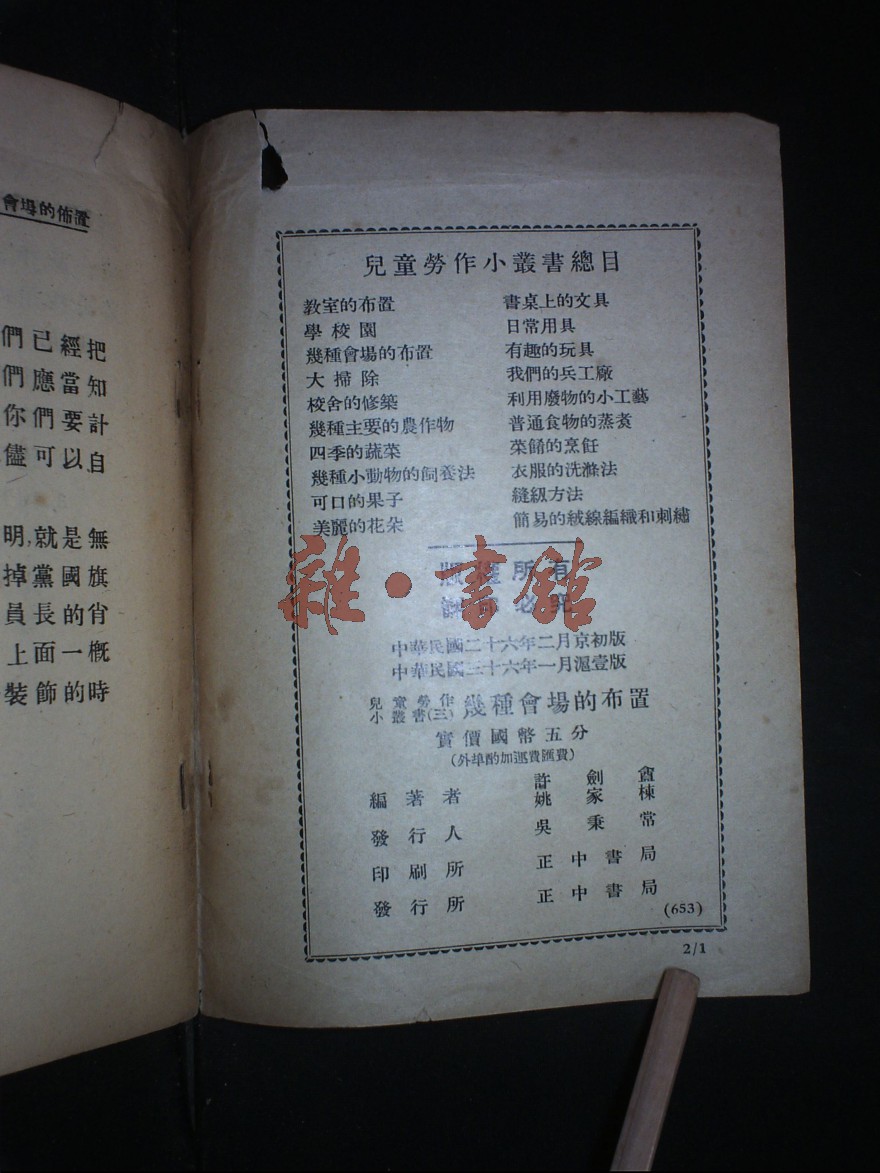 會場的佈置
們已經把
們應當知
你們要計
儘可以自
明,就是無
掉黨國旗
員長的肖
上面一概
裝飾的時
兒童勞作小叢書總目
教室的布置
學校園
幾種會場的布置
大掃除
校舍的修築
幾種主要的農作物
四季的蔬菜
幾種小動物的飼養法
可口的果子
美麗的花朵
書桌上的文具
日常用具
有趣的玩具
我們的兵工廠
利用廢物的小工藝
普通食物的蒸煑
菜餚的烹飪
衣服的洗滌法
縫紉方法
簡易的絨線編織和刺繡
雜·書館
版權所有
翻印必究
中華民國二十六年二月京初版
中華民國三十六年一月滬壹版
兒童勞作
小叢書(三) 幾種會場的布置
實價國幣五分
(外埠酌加運費匯費)
編著者 許劍盦
姚家棟
發行人 吳秉常
印刷所 正中書局
發行所 正中書局
(653)
2/1